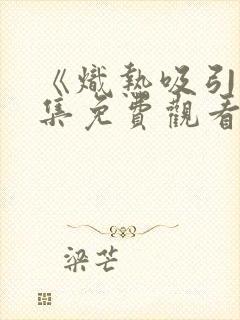 《熾熱吸引
集免費觀看
梁芒